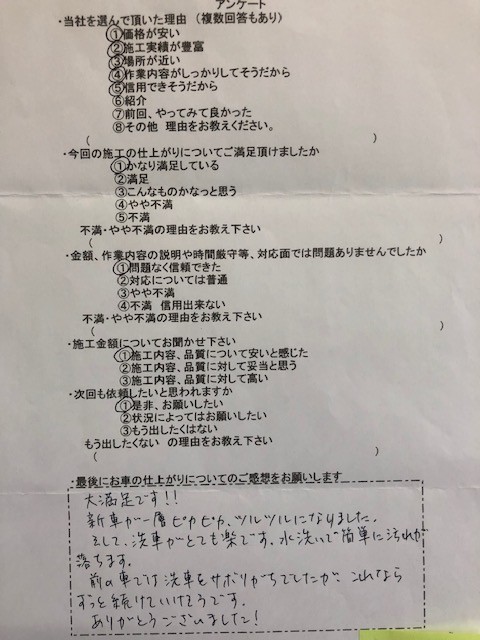 アンケート
・当社を選んで頂いた理由 (複数回答もあり)
①価格が安い
②施工実績が豊富
③場所が近い
④作業内容がしっかりしてそうだから
⑤信用できそうだから
⑥紹介
⑦前回、やってみて良かった
⑧その他 理由をお教えください。
( )
・今回の施工の仕上がりについてご満足頂けましたか
①かなり満足している
②満足
③こんなものかなっと思う
④やや不満
⑤不満
不満・やや不満の理由をお教え下さい
( )
・金額、作業内容の説明や時間厳守等、対応面では問題ありませんでしたか
①問題なく信頼できた
②対応については普通
③やや不満
④不満 信用出来ない
不満・やや不満の理由をお教え下さい
( )
・施工金額についてお聞かせ下さい
①施工内容、品質について安いと感じた
②施工内容、品質に対して妥当と思う
③施工内容、品質に対して高い
・次回も依頼したいと思われますか
①是非、お願いしたい
②状況によってはお願いしたい
③もう出したくはない
もう出したくない の理由をお教え下さい
( )
・最後にお車の仕上がりについてのご感想をお願いします
大満足です!!
新車が一層ピカピカ、ツルツルになりました。
そして、洗車がとても楽です。水洗いで簡単に汚れが
落ちます。
前の車では洗車をサボりがちでしたが、これなら
ずっと続けていけそうです。
ありがとうございました!